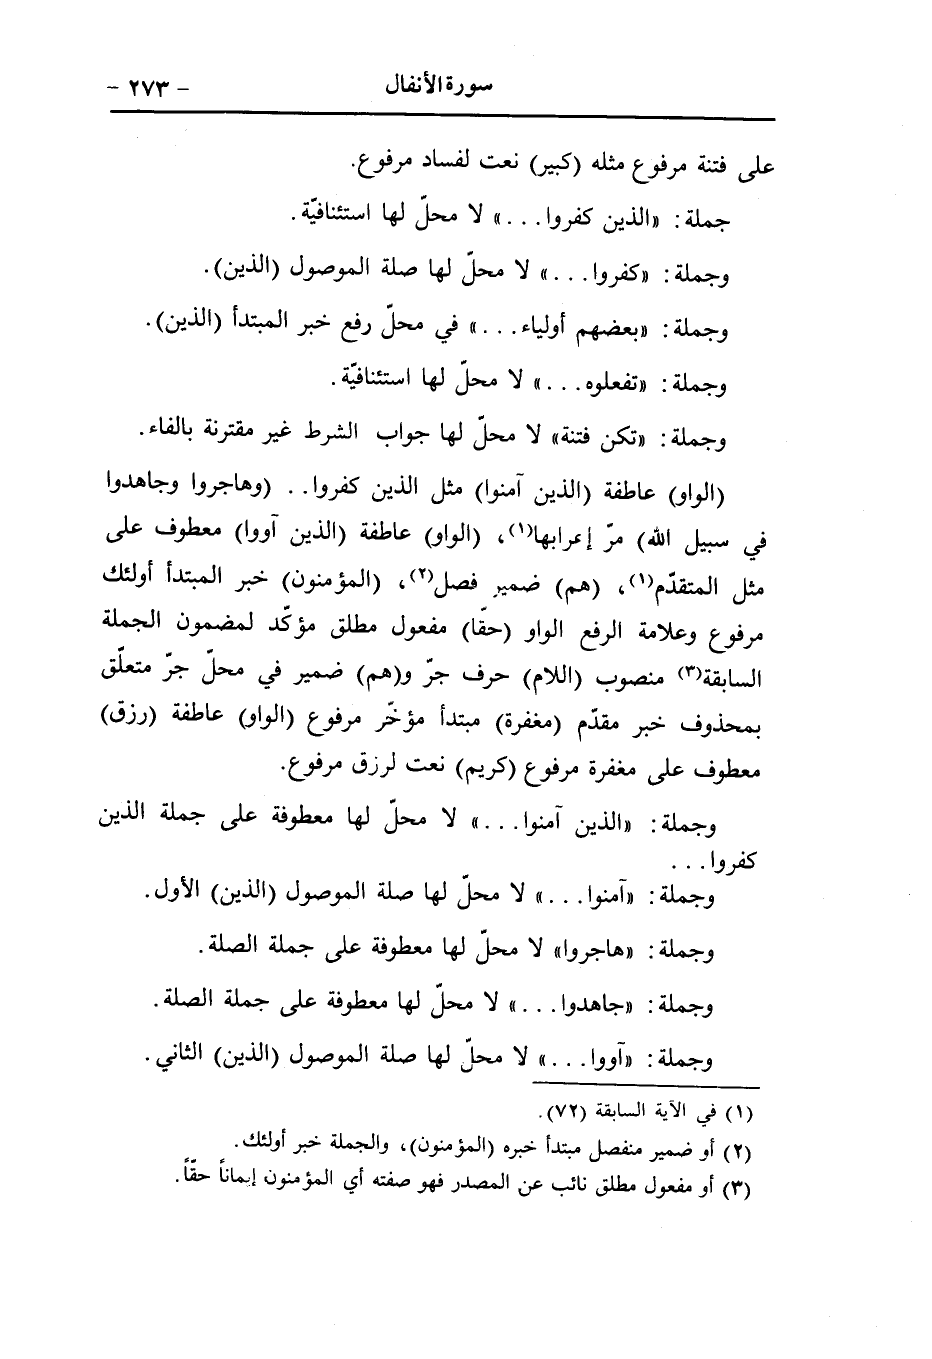 سورة الأنفال - ٢٧٣ -
على فتنة مرفوع مثله (كبير) نعت لفساد مرفوع.
جملة: «الذين كفروا...» لا محلّ لها استئنافيّة.
وجملة: «كفروا...» لا محلّ لها صلة الموصول (الذين).
وجملة: «بعضهم أولياء...» في محلّ رفع خبر المبتدأ (الذين).
وجملة: «تفعلوه...» لا محلّ لها استئنافيّة.
وجملة: «تكن فتنة» لا محلّ لها جواب الشرط غير مقترنة بالفاء.
(الواو) عاطفة (الذين آمنوا) مثل الذين كفروا.. (وهاجروا وجاهدوا
في سبيل الله) مرّ إعرابها(١)، (الواو) عاطفة (الذين آووا) معطوف على
مثل المتقدّم(١)، (هم) ضمير فصل(٢)، (المؤمنون) خبر المبتدأ أولئك
مرفوع وعلامة الرفع الواو (حقّا) مفعول مطلق مؤكّد لمضمون الجملة
السابقة(٣) منصوب (اللام) حرف جرّ و(هم) ضمير في محلّ جرّ متعلّق
بمحذوف خبر مقدّم (مغفرة) مبتدأ مؤخّر مرفوع (الواو) عاطفة (رزق)
معطوف على مغفرة مرفوع (كريم) نعت لرزق مرفوع.
وجملة: «الذين آمنوا...» لا محلّ لها معطوفة على جملة الذين
كفروا...
وجملة: «آمنوا...» لا محلّ لها صلة الموصول (الذين) الأول.
وجملة: «هاجروا» لا محلّ لها معطوفة على جملة الصلة.
وجملة: «جاهدوا...» لا محلّ لها معطوفة على جملة الصلة.
وجملة: «آووا...» لا محلّ لها صلة الموصول (الذين) الثاني.
(١) في الآية السابقة (٧٢).
(٢) أو ضمير منفصل مبتدأ خبره (المؤمنون)، والجملة خبر أولئك.
(٣) أو مفعول مطلق نائب عن المصدر فهو صفته أي المؤمنون إيماناً حقّاً.